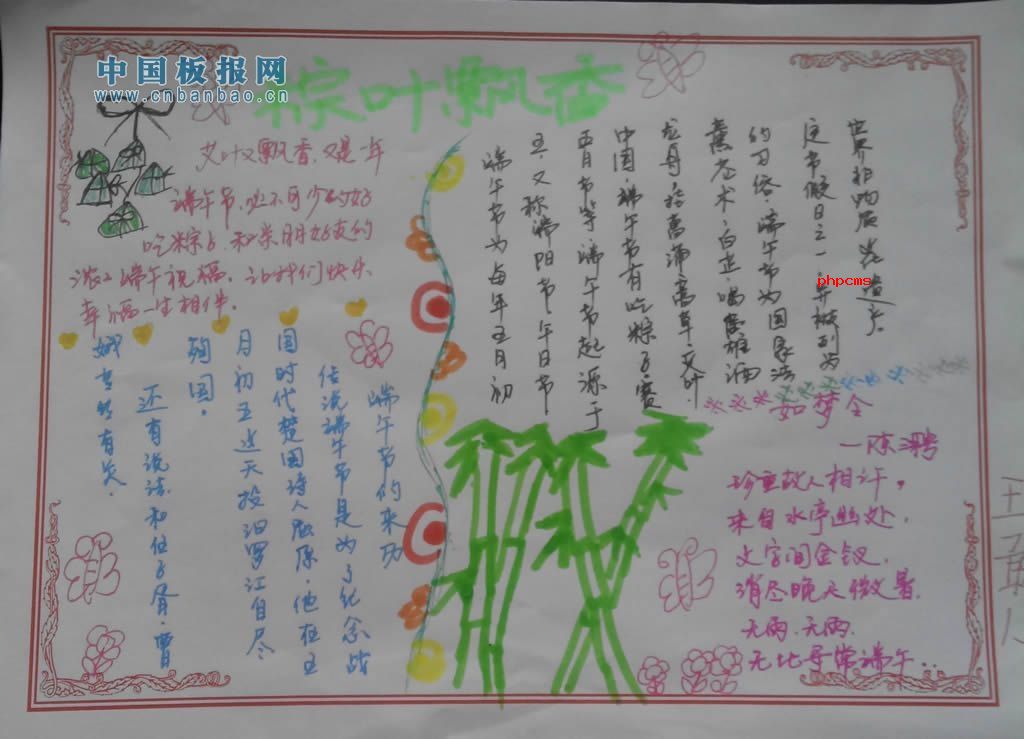 中国板报网
www.cnbanbao.cn
粽叶飘香
艾叶又飘香,又是一年
端午节,必不可少的好
吃粽子,和亲朋好友的
浓浓端午祝福,让我们快乐
幸福一生相伴。
端午节为每年五月初
五,又称端阳节,午日节,
五月节等,端午节起源于
中国,端午节有吃粽子,赛
龙舟,挂菖蒲,蒿草,艾叶,
薰苍术,白芷,喝雄黄酒
的习俗,端午节为国家法
定节假日之一,并被列为
世界非物质
phpcms
端午节的来历
传说端午节是为了纪念战
国时代楚国诗人屈原,他在五
月初五这天投汨罗江自尽
殉国。
还有说法和伍子胥,曹
娥等有关.
如梦令
一陈聘
珍重故人相许,
来自水亭幽处,
文字间金钗,
消尽晚天微暑,
无雨,无雨,
无比寻常端午..